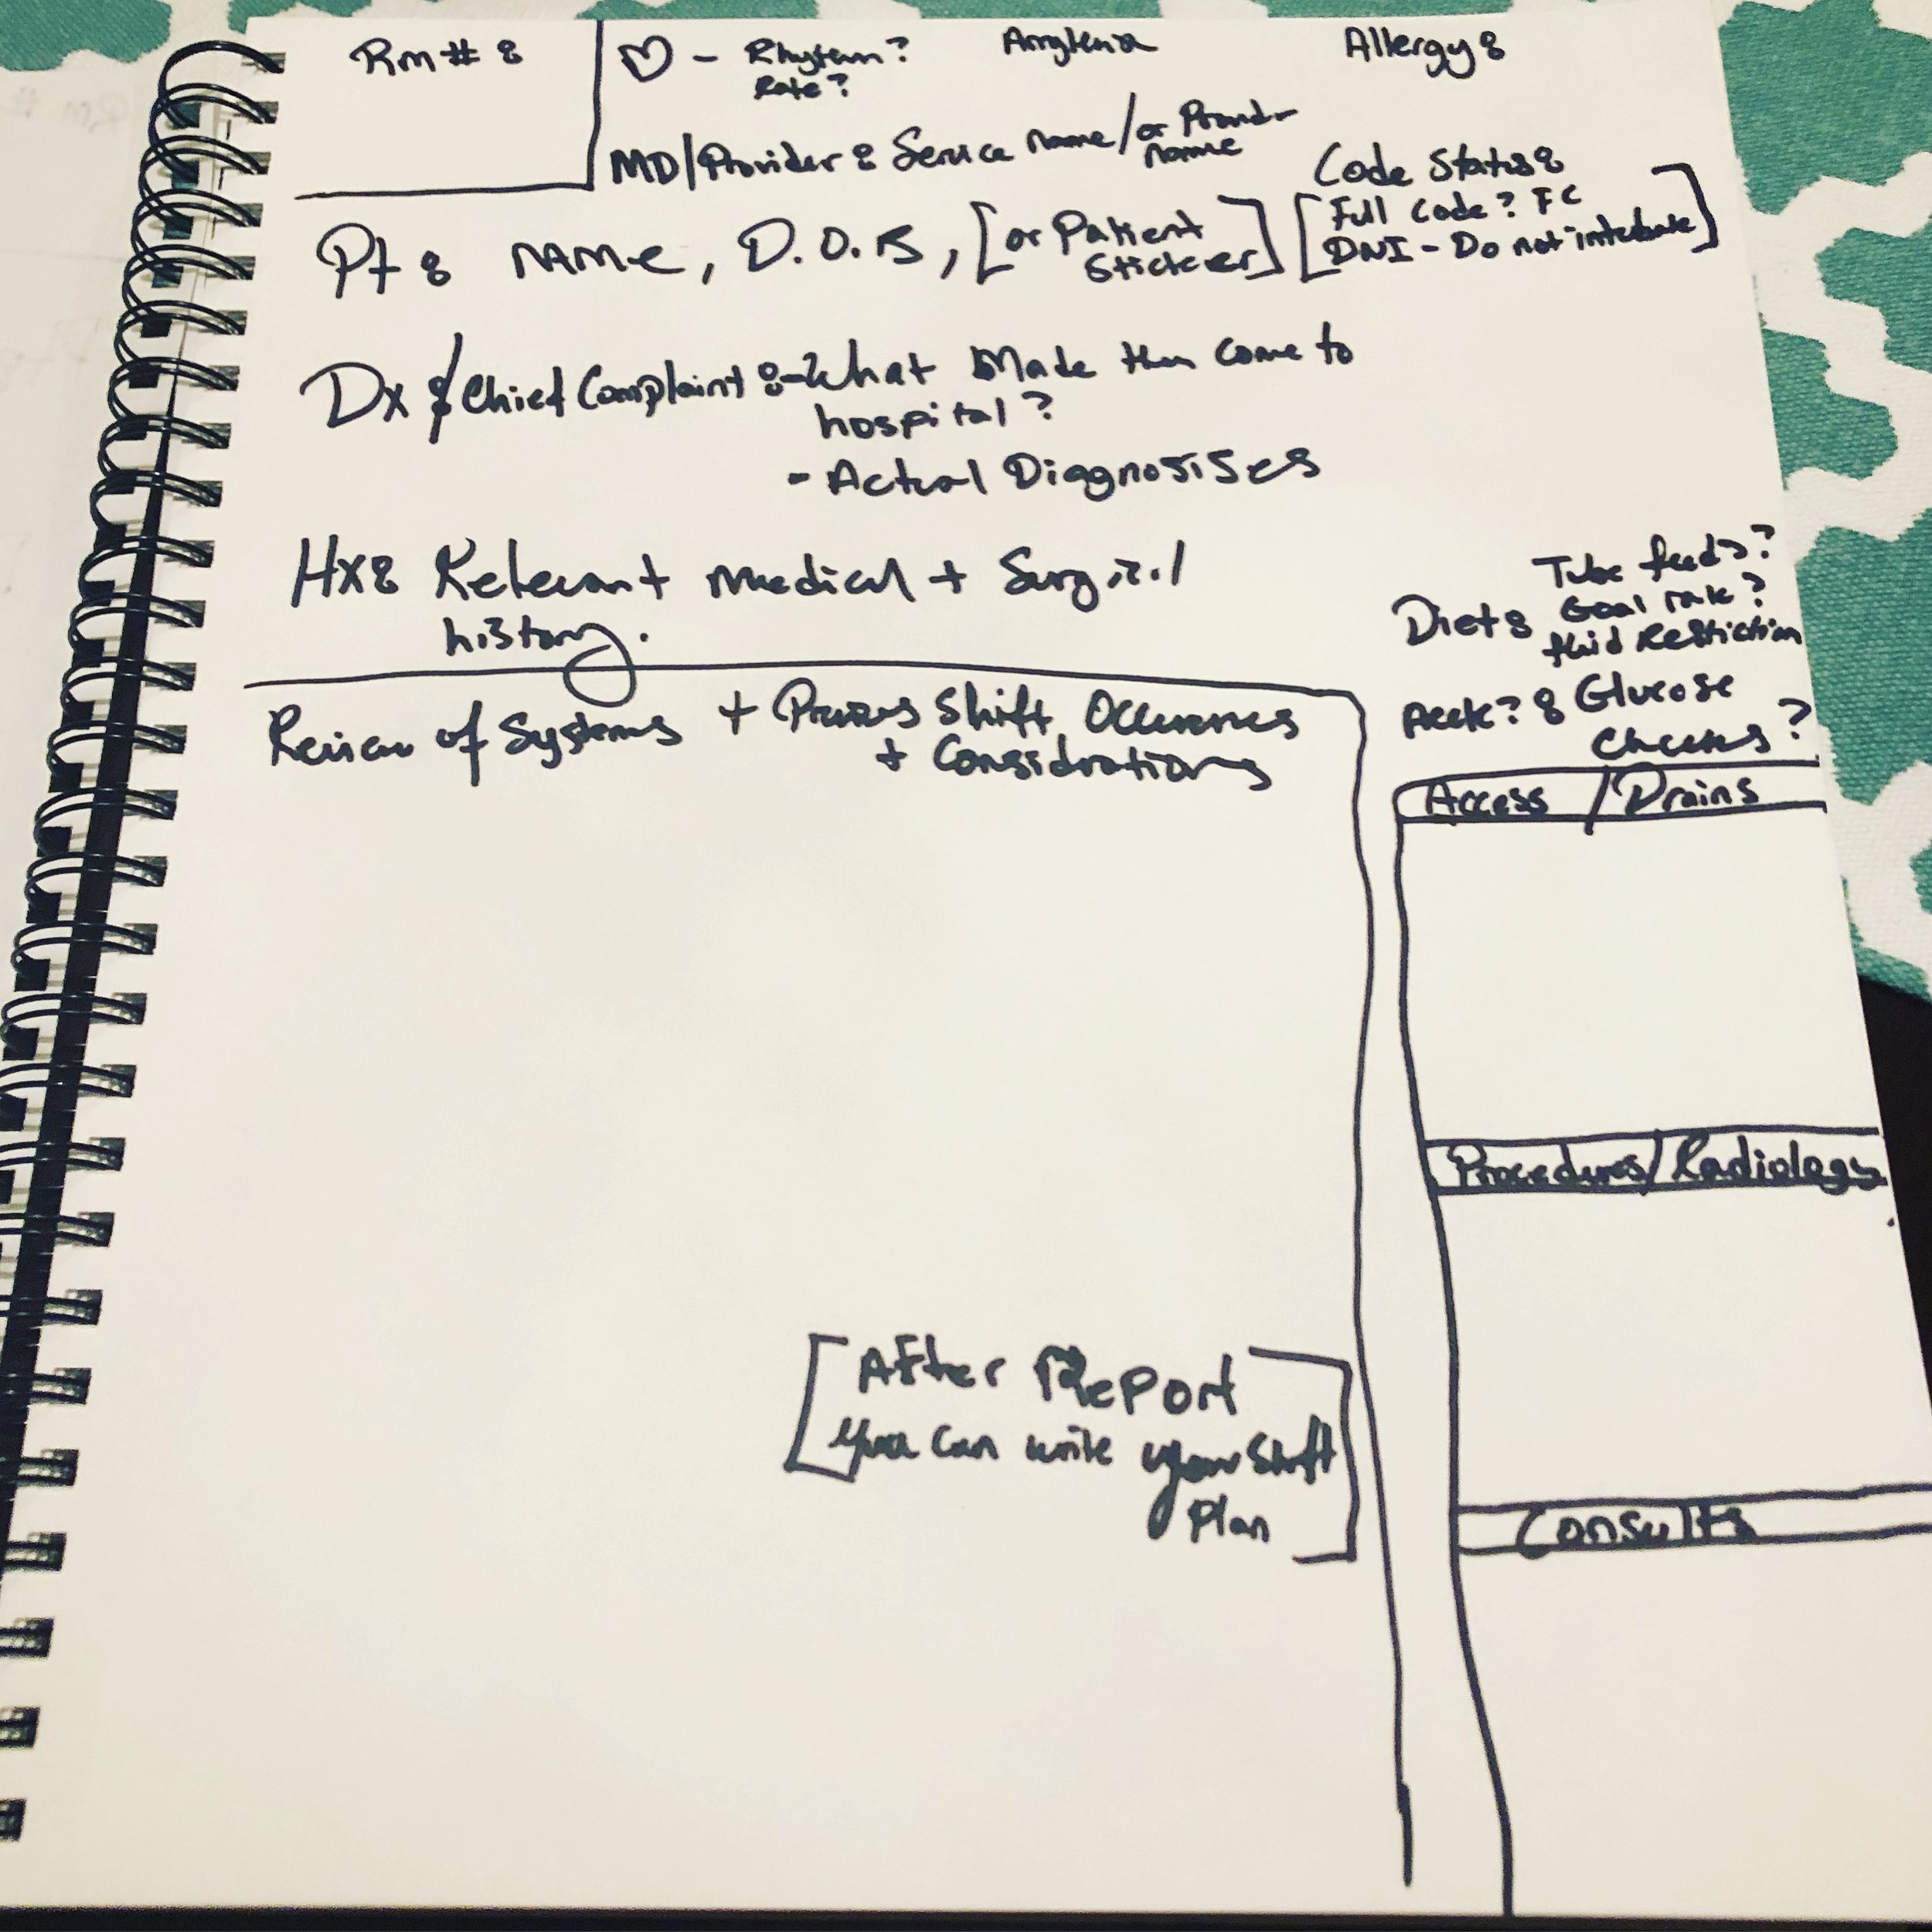 Rm# :
♡ - Rhythm?
Rate?
Allergy:
MD/Provider: Service name/or Provider
name
Code Status:
[Full Code? FC
DNI - Do not intubate]
Pt: NAME, D.O.B, [or Patient
Sticker]
Dx & Chief Complaint: - What Made them come to
hospital?
- Actual Diagnosises
Hx: Relevant medical + Surgical
history.
Tube feeds?
Diet: Goal rate?
fluid Restriction
Glucose
Checks?
Review of Systems + Previous Shift Occurences
+ Considrations
Access / Drains
Procedures/Radiology
[After Report
you can write your Shift
Plan]
Consults